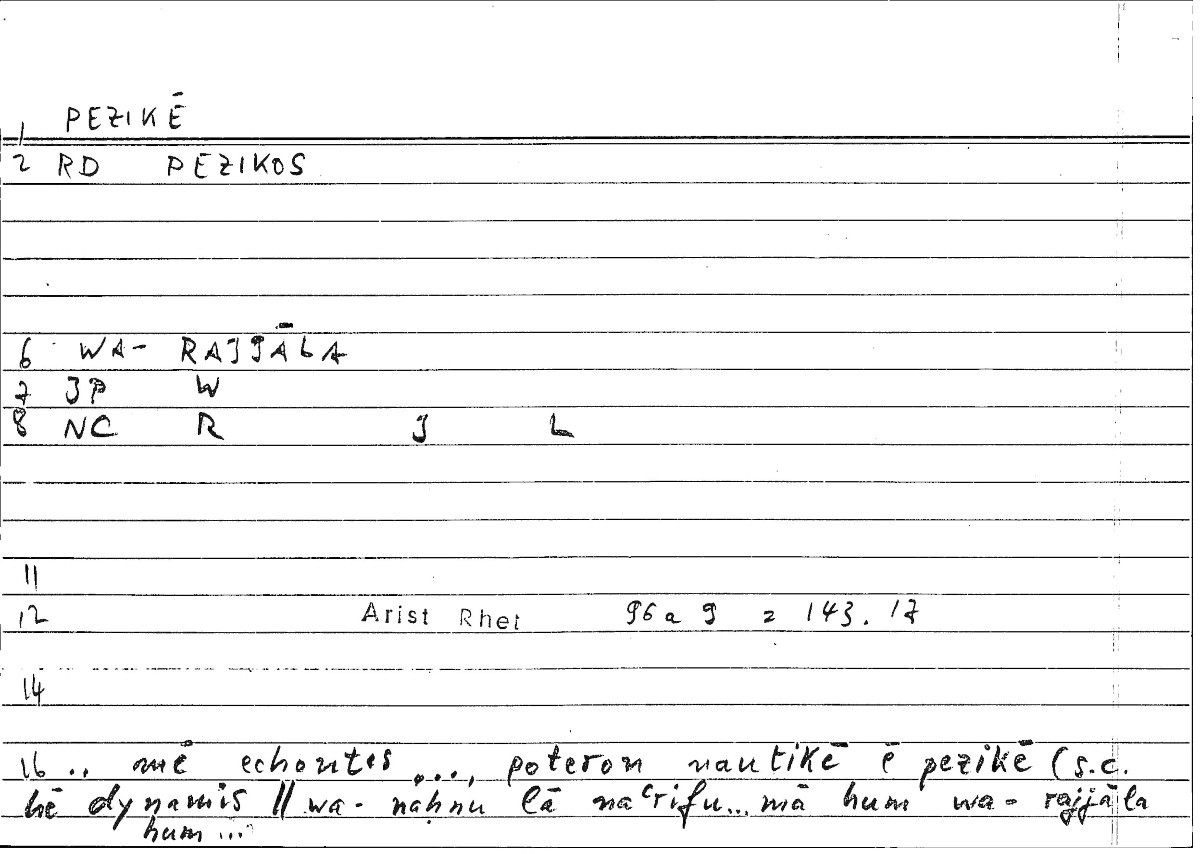 1 PEZIKĒ
2 RD PEZIKOS
6 WA- RAJJĀLA
7 JP W
8 NC R J L
11
12 Arist Rhet 96a 9 = 143.17
14
16 .. mē echontes ..., poteron nautikē ē pezikē (s.c.
hē dynamis || wa-naḥnu lā naʿrifu... mā hum wa-rajjāla
hum ...